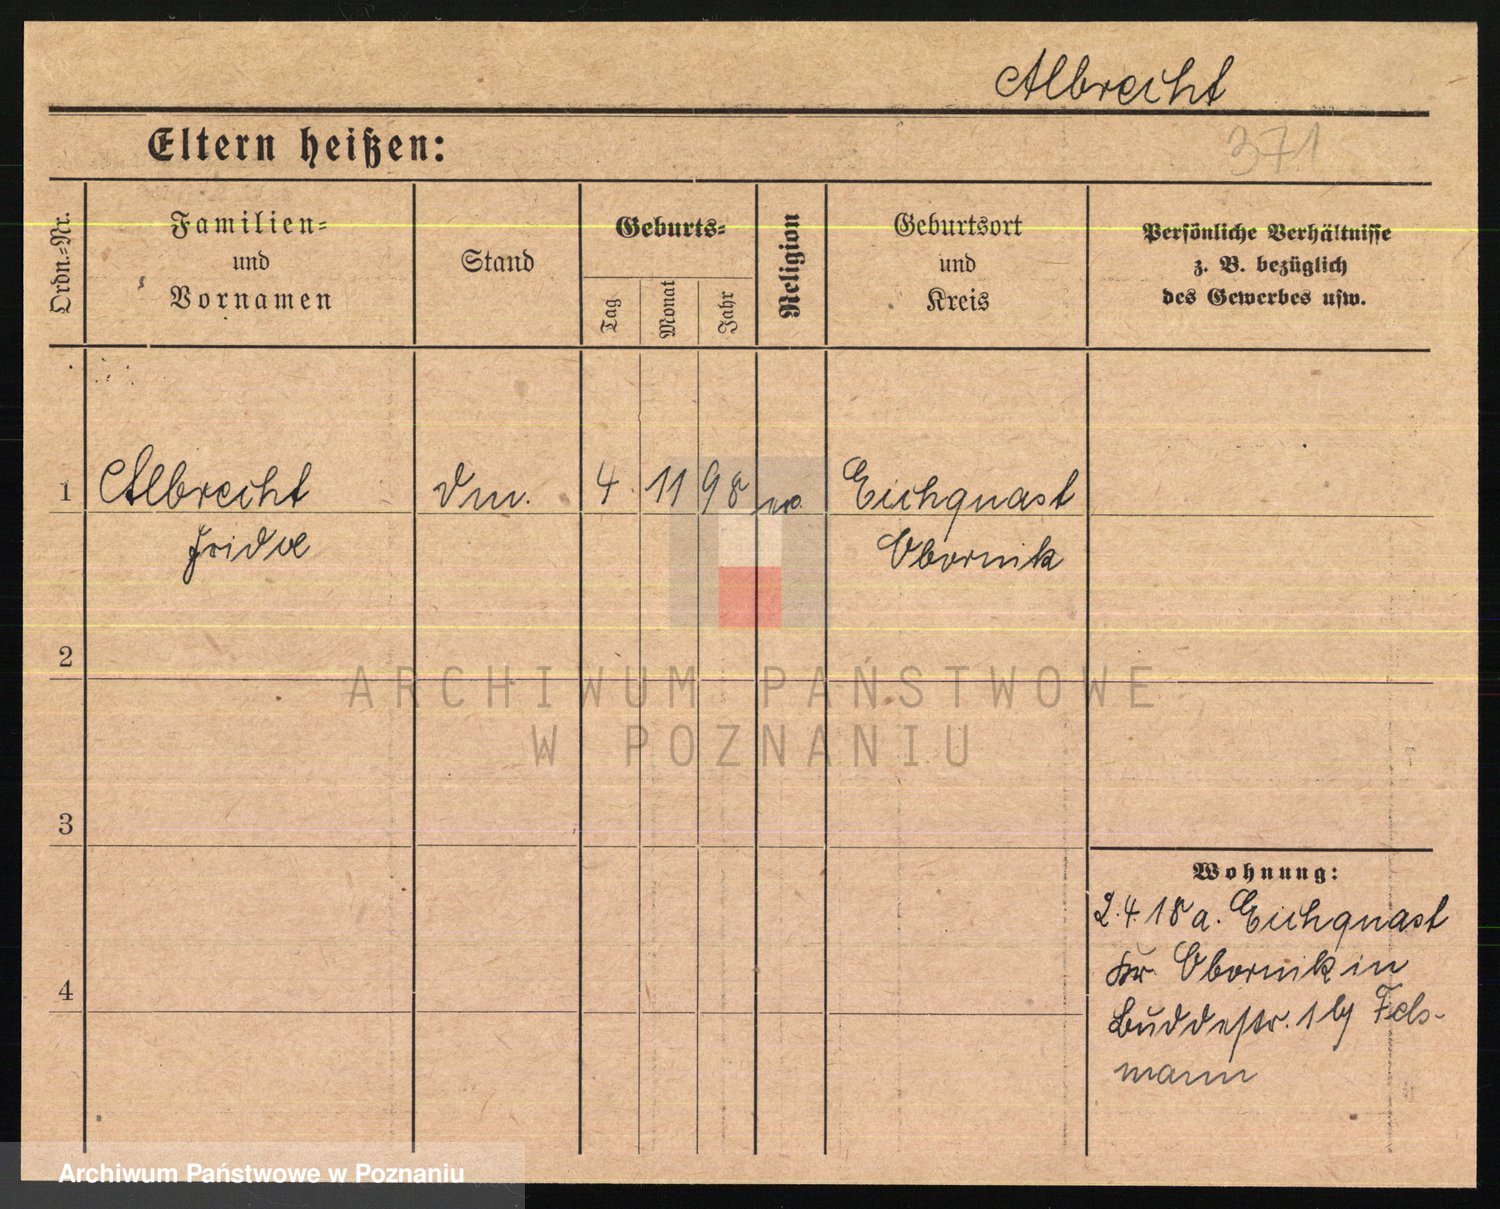 Albrecht
371
Eltern heißen:
Ordn.-Nr.
Familien-
und
Vornamen
Stand
Geburts-
Tag
Monat
Jahr
Religion
Geburtsort
und
Kreis
Persönliche Verhältnisse
z. B. bezüglich
des Gewerbes usw.
1 Albrecht 4. 11 98 Eichquast
Frida Obornik
2
ARCHIWUM PAŃSTWOWE
W POZNANIU
3
Wohnung:
2.4 18 a. Eichquast
Kr. Obornik in
4
Buddestr. 1
mann
Archiwum Państwowe w Poznaniu